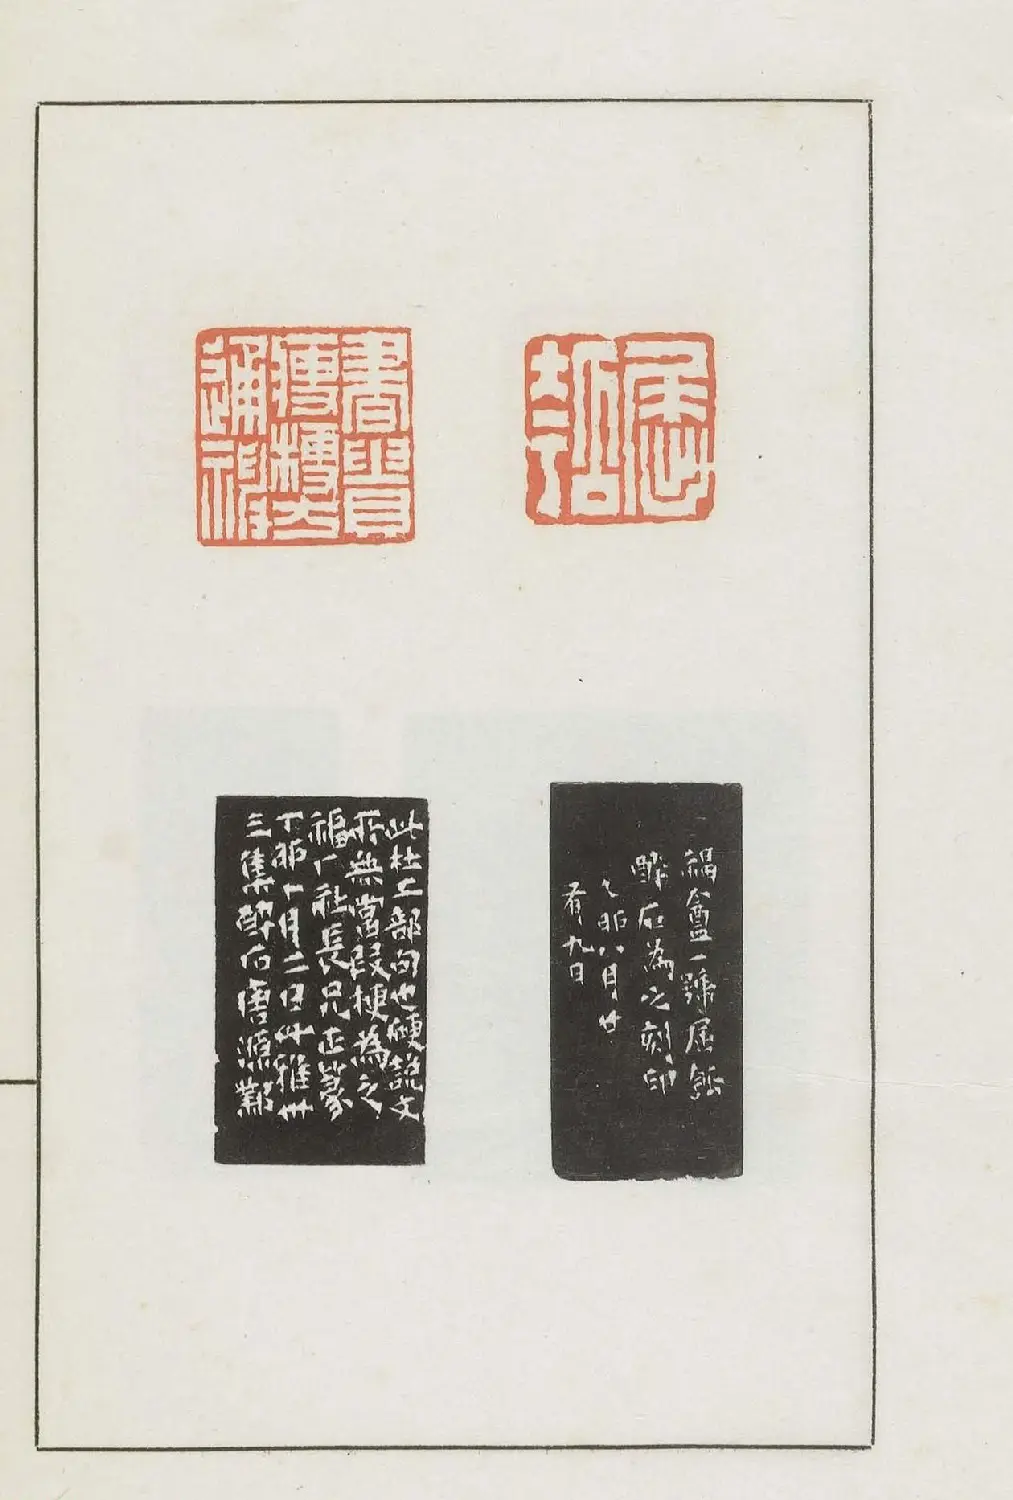 書貴
瘦梗方
通神
福盦一號屈
醉石為之刻印
乙卯八月廿
有九日
此杜工部句也硬說文
所無當叚梗為之
福厂社長兄正篆
丁卯十月二日艸雅艸
三集醉石唐源鄴